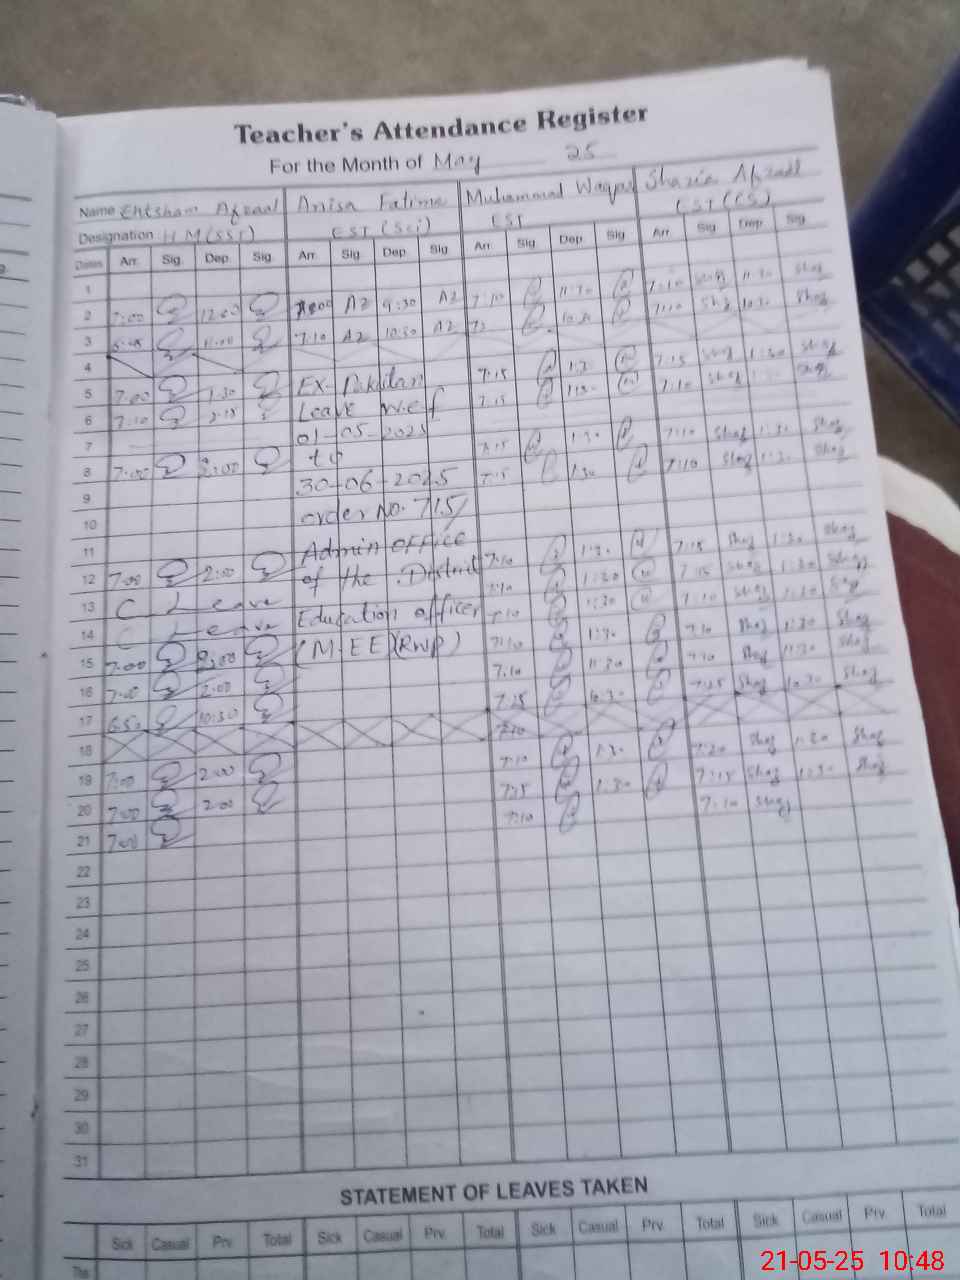 Teacher's Attendance Register
For the Month of May 25
Name Ehtsham Afzaal Anisa Fatima Muhammad Waqas Shazia Afzaal
Designation HM (SST) EST (Sci) EST EST (CS)
Dates Arr. Sig. Dep. Sig. Arr. Sig. Dep. Sig. Arr. Sig. Dep. Sig. Arr. Sig. Dep. Sig.
1
2 7:00 12:00 AZ 9:30 AZ 7:10 11:30 7:10 Shaz 11:30 Shaz
3 11:00 7:10 AZ 10:30 AZ 10:30 7:10 Shaz 10:30 Shaz
4
5 7:00 1:30 EX-Pakistan 7:15 1:30 7:15 Shaz 1:30 Shaz
6 7:10 Leave w.e.f 7:15 1:30 7:10 Shaz Shaz
7 01-05-2025
8 7:00 2:00 to 7:15 1:30 7:10 Shaz 1:30 Shaz
9 30-06-2025 7:15 1:30 7:10 Shaz 1:30 Shaz
10 order No. 715/
11 Admin office
12 7:00 2:00 of the District 7:10 1:30 7:15 Shaz 1:30 Shaz
13 C Leave Education officer 7:10 1:30 7:15 Shaz 1:30 Shaz
14 C Leave (M-EE) (RWP) 7:10 1:30 7:10 Shaz 1:30 Shaz
15 7:00 2:00 7:10 1:30 7:10 Shaz 1:30 Shaz
16 7:00 2:00 7:10 11:30 7:10 Shaz 11:30 Shaz
17 6:50 10:30 7:25 10:30 7:25 Shaz 10:30 Shaz
18 7:10
19 7:00 2:00 7:10 1:30 7:20 Shaz 1:30 Shaz
20 7:00 2:00 7:25 1:30 7:15 Shaz 1:30 Shaz
21 7:00 7:10 7:10 Shaz
22
23
24
25
26
27
28
29
30
31
STATEMENT OF LEAVES TAKEN
Sick Casual Prv. Total Sick Casual Prv. Total Sick Casual Prv. Total Sick Casual Prv. Total
This
21-05-25 10:48